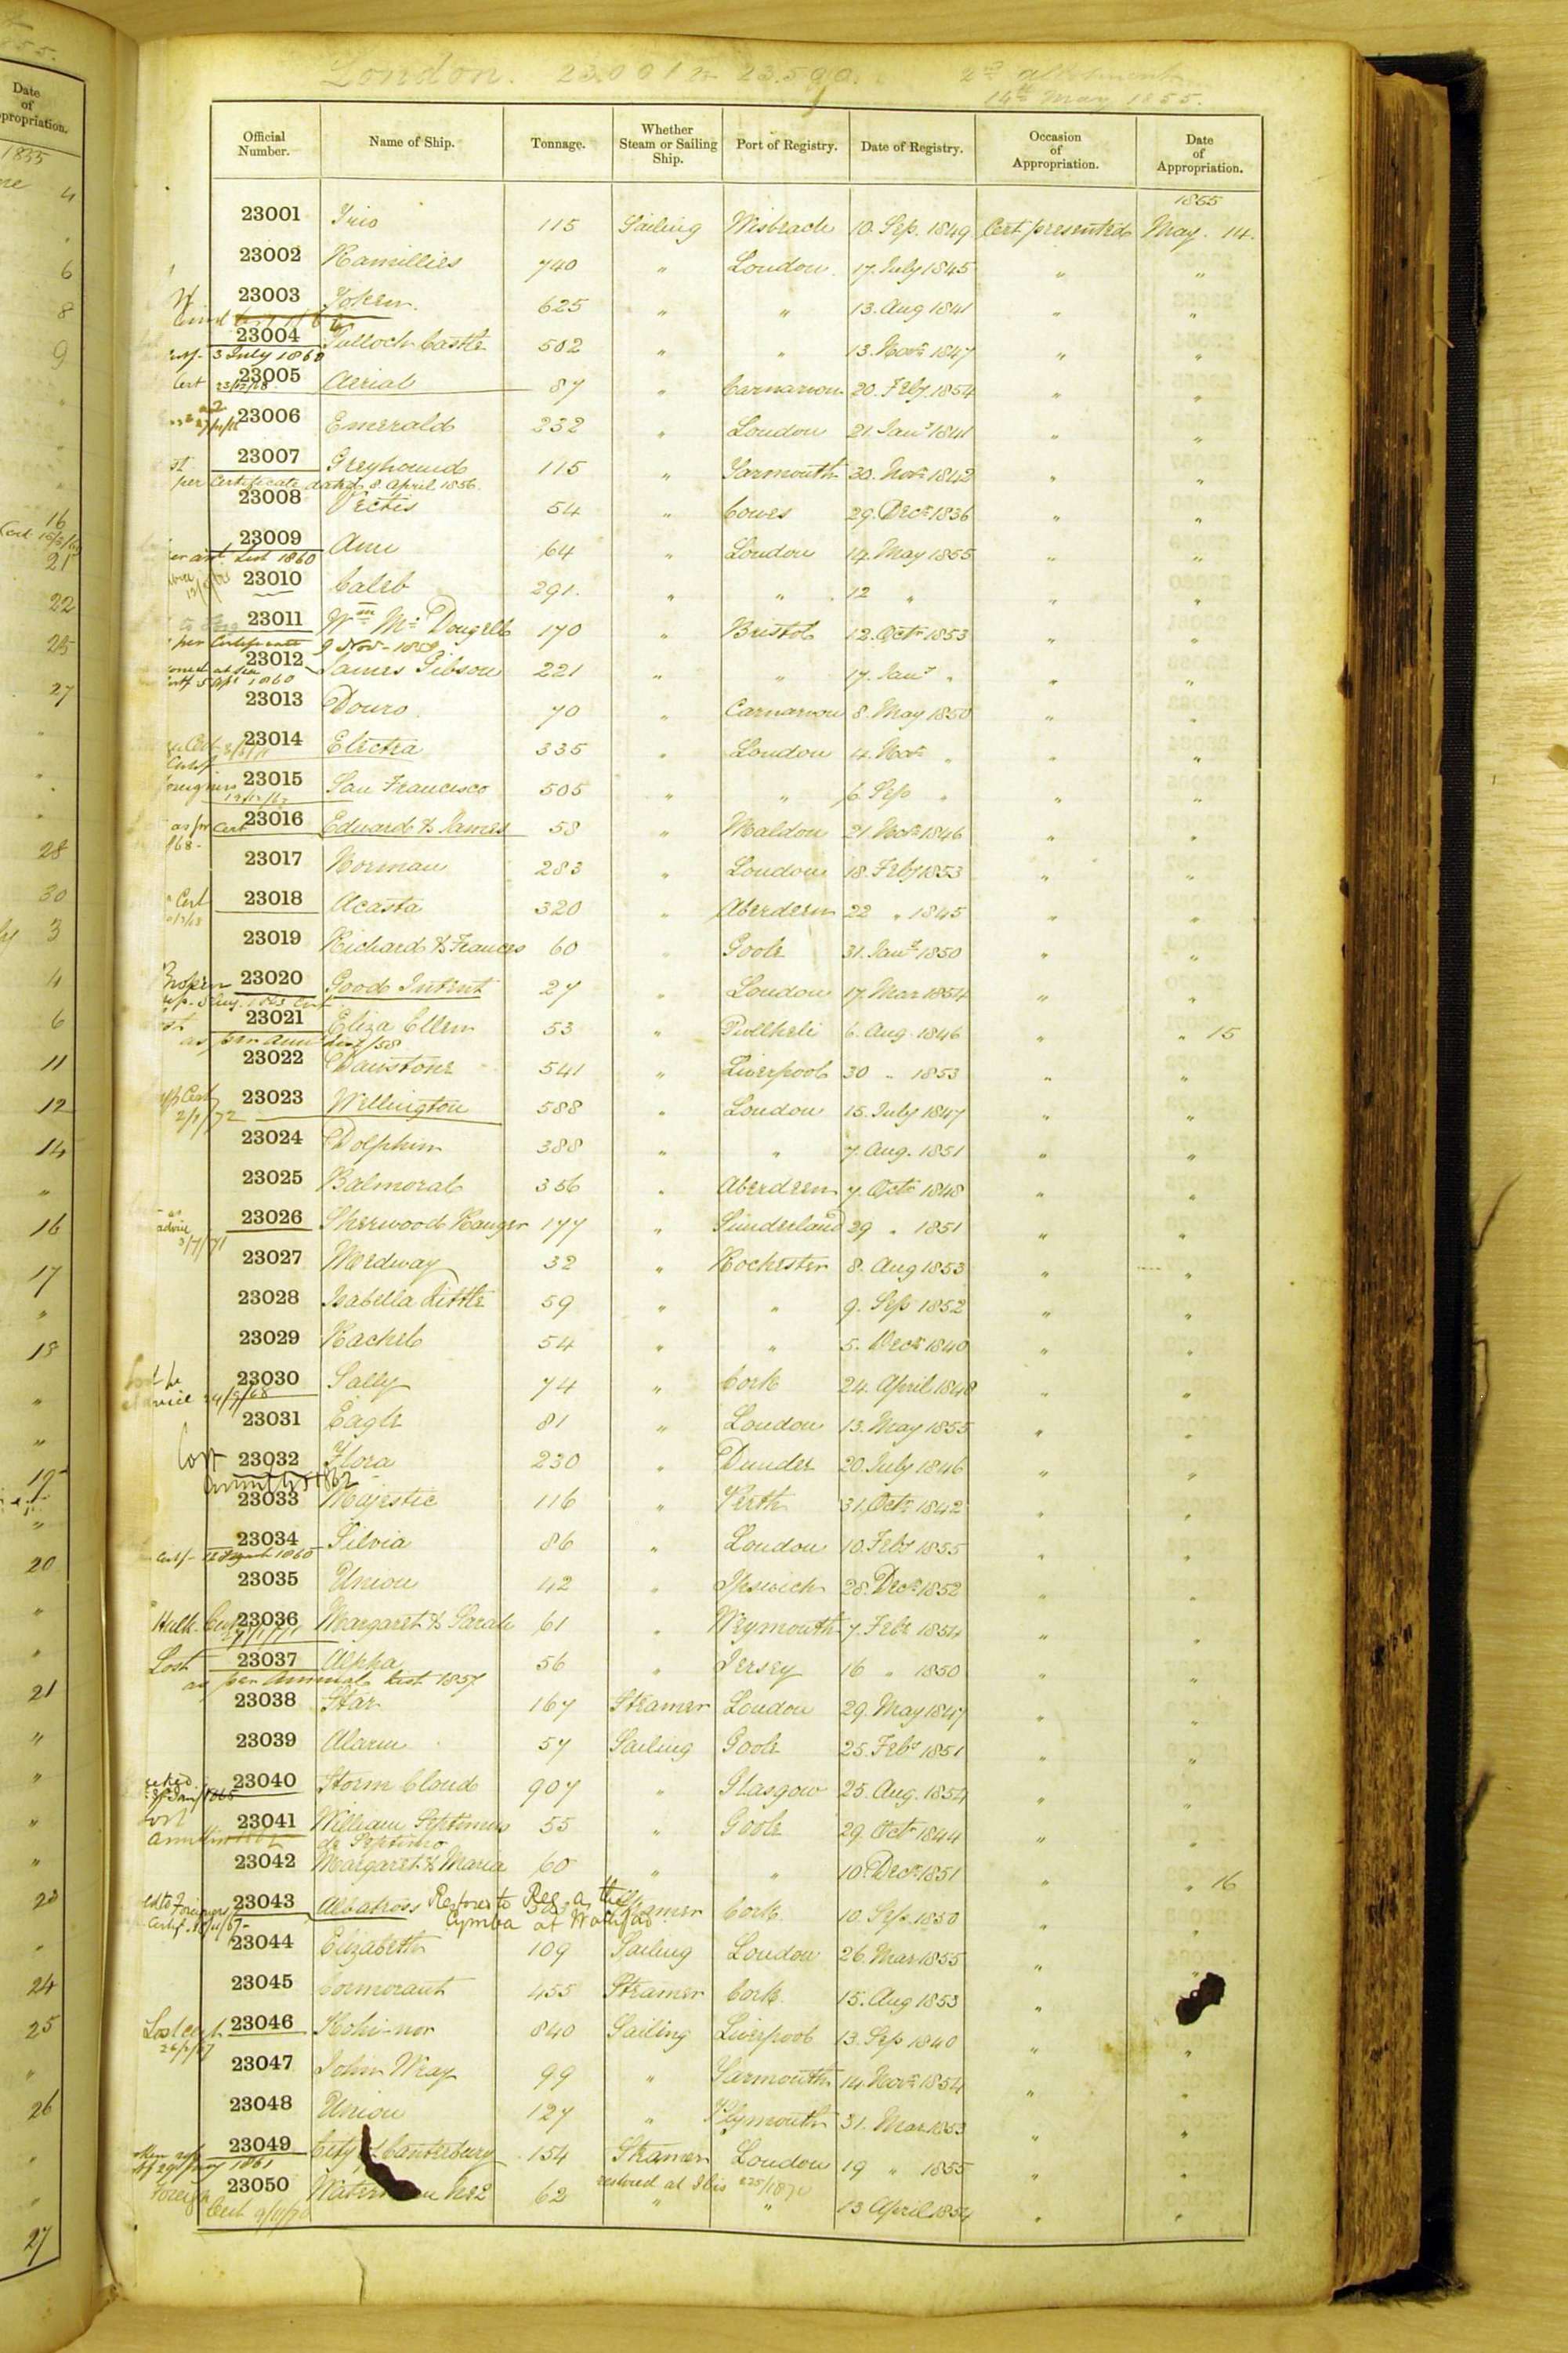 London. 23.001 to 23.500. 2nd allotment
14th May 1855.
Official Number. Name of Ship. Tonnage. Whether Steam or Sailing Ship. Port of Registry. Date of Registry. Occasion of Appropriation. Date of Appropriation.
1855
23001 Trio 115 Sailing Wisbeach 10. Sep. 1849 Cert presented May. 14.
23002 Ramillies 740 " London 17. July 1845 " "
23003 Token 625 " " 13. Aug 1841 " "
23004 Tulloch Castle 502 " " 13. Novr 1847 " "
3 July 1860
23005 Aerial 87 " Carnarvon 20. Feby. 1854 " "
Cert
23006 Emerald 232 " London 21. Jany 1841 " "
23007 Greyhound 115 " Yarmouth 30. Novr 1842 " "
per Certificate dated 8. April 1856.
23008 Vectis 54 " Cowes 29. Decr 1836 " "
23009 Ann 64 " London 14. May 1855 " "
List 1860
23010 Caleb 291. " " 12 " " "
23011 Wm Mc Dougall 170 " Bristol 12. Octr 1853 " "
per Certificate 9 Nov - 1859
23012 James Gibson 221 " " 17. Jany " " "
5 Apl 1860
23013 Douro 70 " Carnarvon 8. May 1850 " "
23014 Electra 335 " London 4. Novr " " "
23015 San Francisco 505 " " 6. Sep " " "
23016 Edward & James 58 " Maldon 21. Novr 1846 " "
as pr Cert
23017 Norman 283 " London 18. Feby 1853 " "
23018 Acasta 320 " Aberdeen 22 " 1845 " "
Cert
23019 Richard & Frances 60 " Goole 31. Jany 1850 " "
23020 Good Intent 27 " London 17. Mar 1854 " "
Broken
23021 Eliza Ellen 53 " Pwllheli 6. Aug. 1846 " " 15
as per Annl List/58
23022 Daustone 541 " Liverpool 30 " 1853 " "
23023 Wellington 588 " London 15. July 1847 " "
23024 Dolphin 388 " " 7. Aug. 1851 " "
23025 Balmoral 356 " Aberdeen 7. Octr 1848 " "
23026 Sherwood Ranger 177 " Sunderland 29 " 1851 " "
advice
23027 Medway 32 " Rochester 8. Aug 1853 " "
23028 Isabella Little 59 " " 9. Sep 1852 " "
23029 Rachel 54 " " 5. Decr 1840 " "
23030 Sally 74 " Cork 24. April 1848 " "
23031 Eagle 81 " London 13. May 1855 " "
23032 Flora 230 " Dundee 20. July 1846 " "
Lost
23033 Majestic 116 " Perth 31. Octr 1842 " "
23034 Silvia 86 " London 10. Feby 1855 " "
23035 Union 42 " Ipswich 28. Decr 1852 " "
23036 Margaret & Sarah 61 " Weymouth 7. Feby 1854 " "
Hulk.
23037 Alpha 56 " Jersey 16 " 1850 " "
Lost as per Annual List 1857
23038 Star 167 Steamer London 29. May 1847 " "
23039 Alarm 57 Sailing Goole 25. Feby 1851 " "
23040 Storm Cloud 907 " Glasgow 25. Aug. 1854 " "
23041 William Septimus 55 " Goole 29. Octr 1844 " "
23042 Margaret & Maria 60 " " 10. Decr 1851 " " 16
23043 Albatross Steamer Cork 10. Sep. 1850 " "
Restored to Reg. as the
Cymba at Waterford
23044 Elizabeth 109 Sailing London 26. Mar 1855 "
23045 Cormorant 455 Steamer Cork 15. Aug 1853 "
23046 Kohi-nor 840 Sailing Liverpool 13. Sep 1840 " "
Lost
23047 John Wray 99 " Yarmouth 14. Novr 1854 " "
23048 Union 127 " Plymouth 31. Mar 1853 " "
23049 City of Canterbury 154 Steamer London 19 " 1855 " "
23050 No 2 62 " " 13 April 1854 " "
Foreign